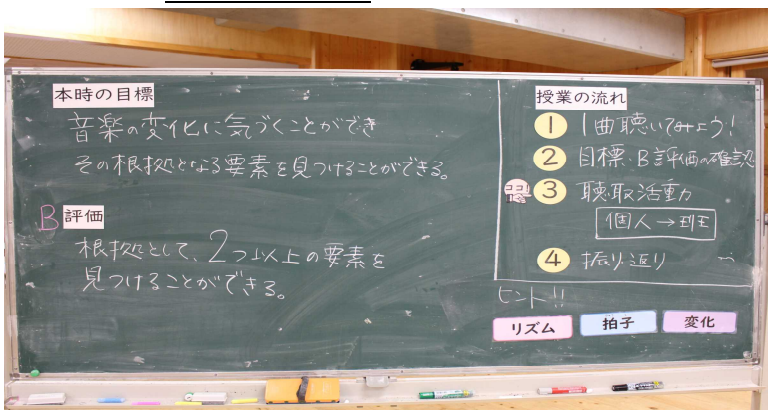 本時の目標
音楽の変化に気づくことができ
その根拠となる要素を見つけることができる。
B 評価
根拠として、2つ以上の要素を
見つけることができる。
授業の流れ
1 1曲聴いてみよう!
2 目標・B評価の確認
ココ!
3 聴取活動
個人→班
4 振り返り
ヒント!!
リズム 拍子 変化